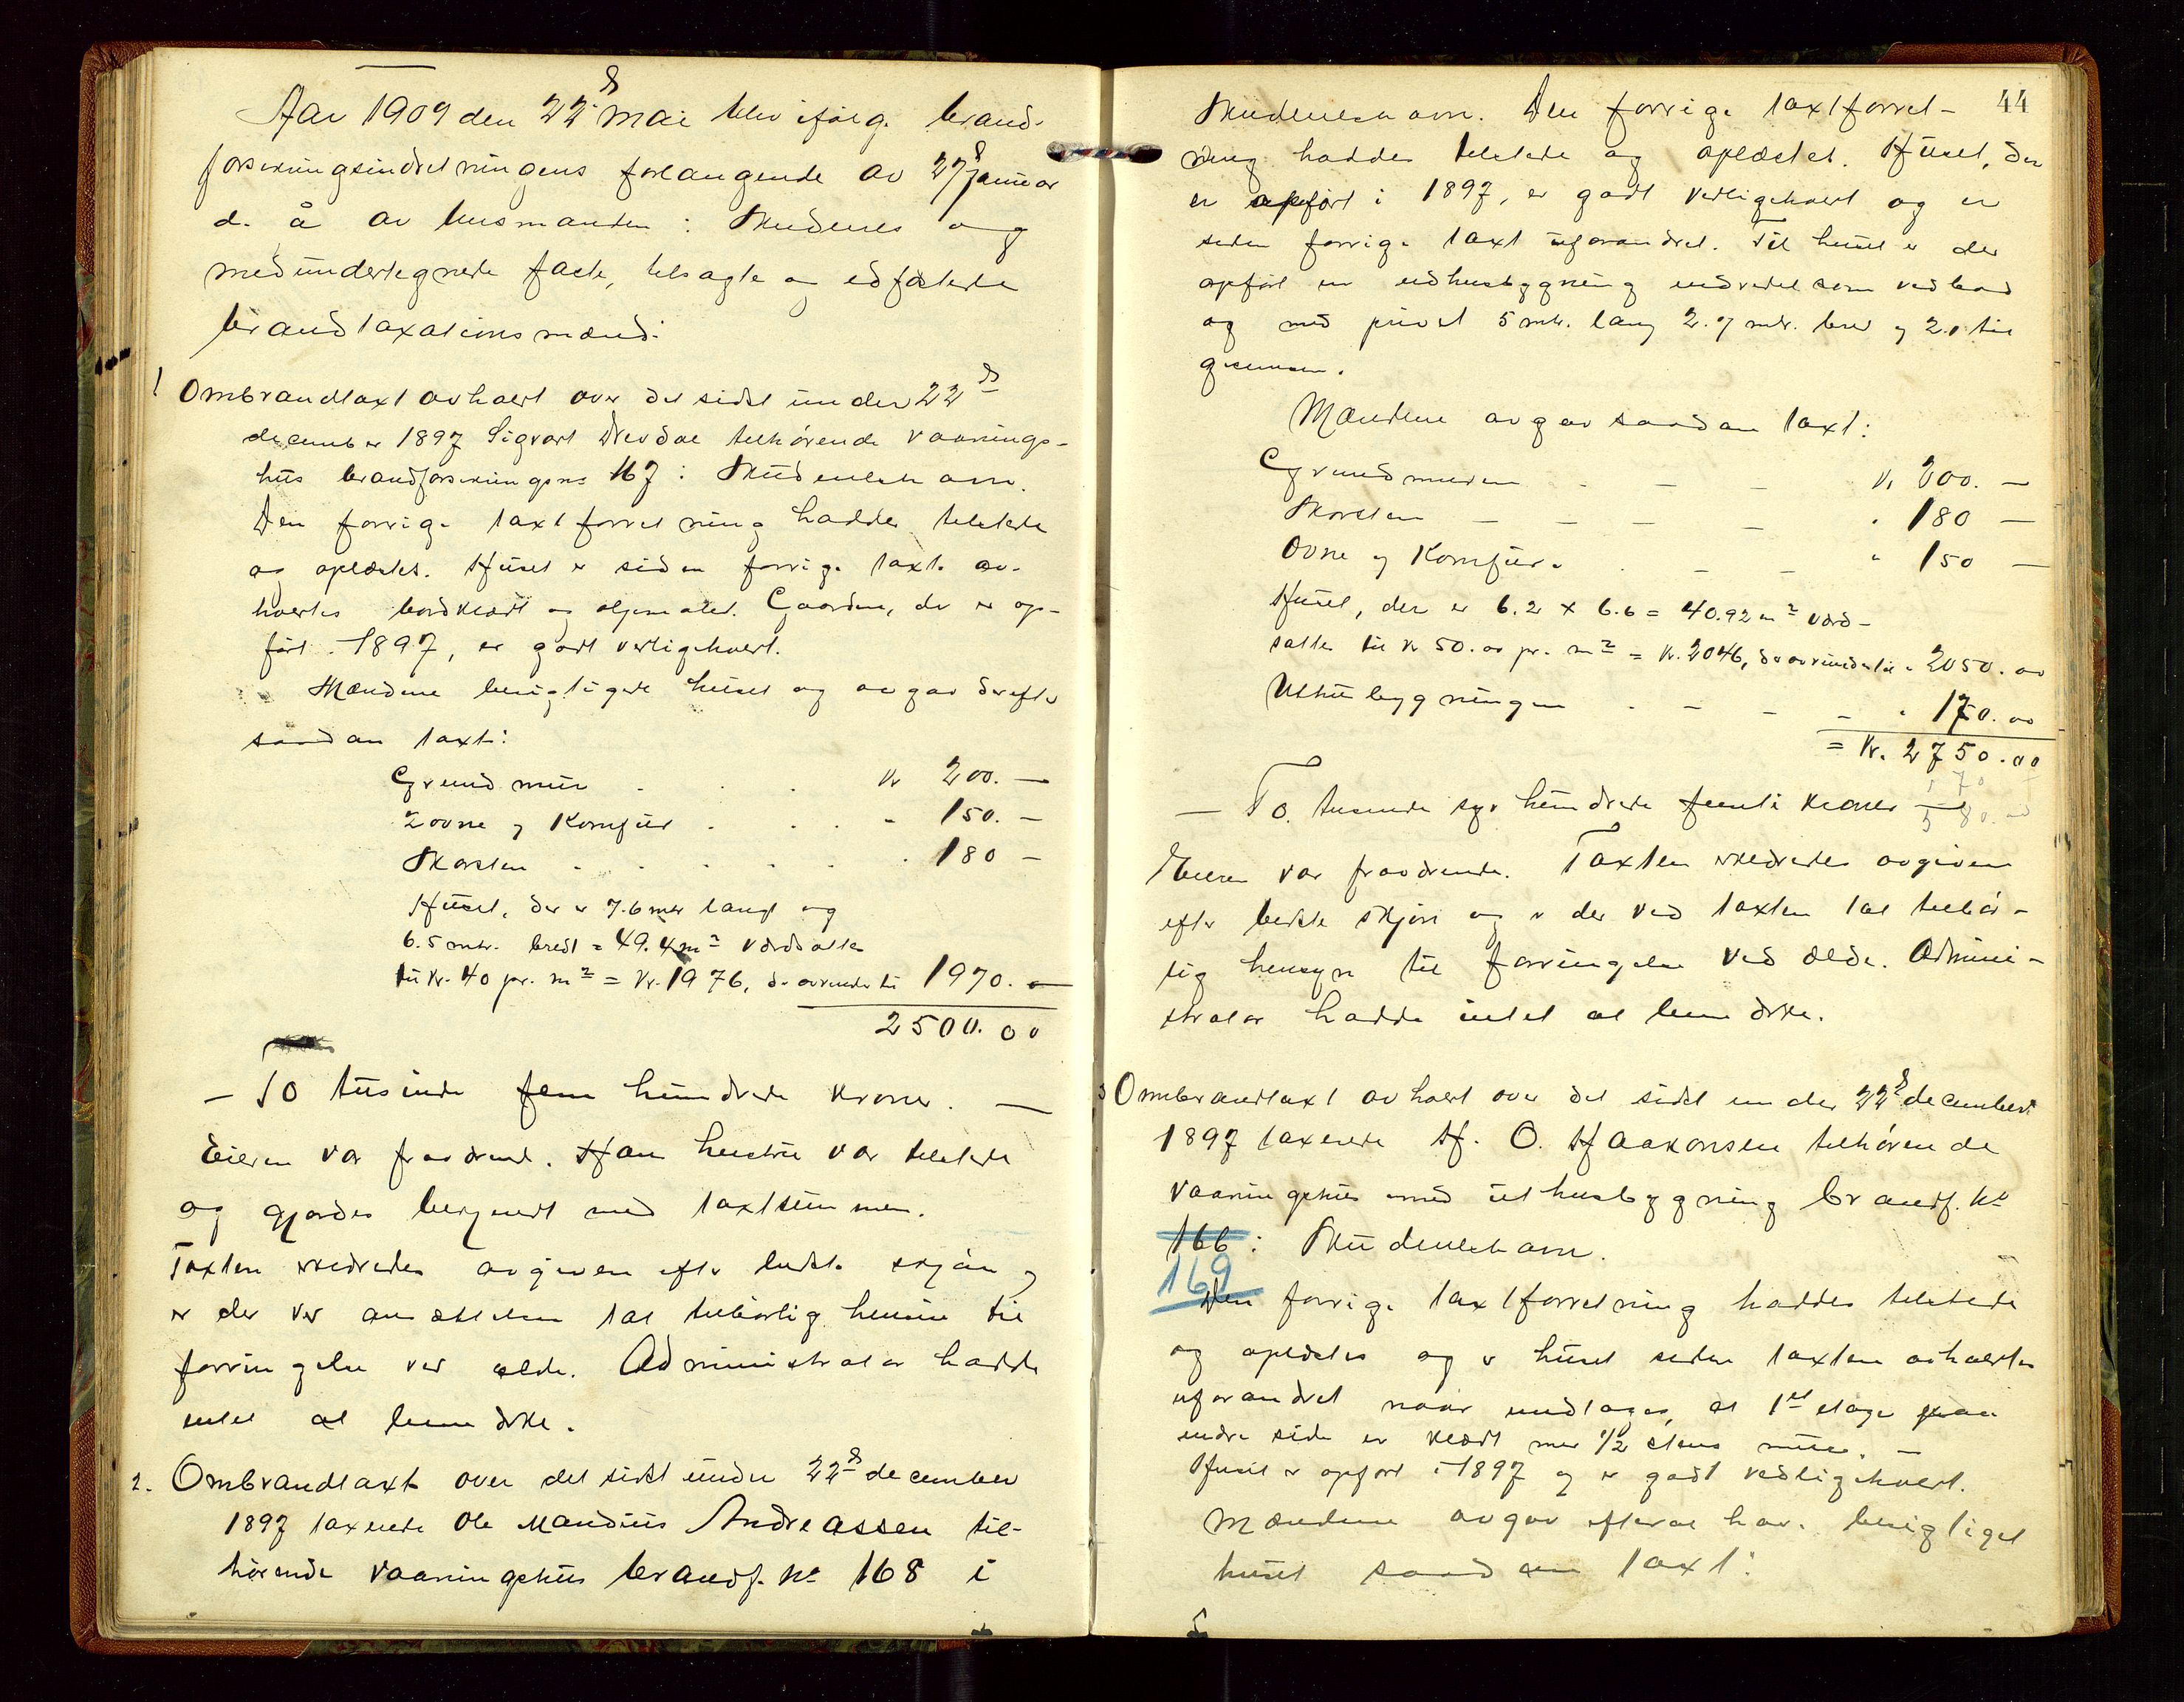 Aar 1909 den 22d mai blev ifølge brand-
forsikringsindretningens forlangende av 27d januar
d. å av husmanden i Skudenes og
medundertegnede faste, tilsagte og edfæstede
brandtaxationsmænd:
1 Ombrandtaxt avholdt over det sidst under 22de
december 1897 Sigvart Drevdal tilhørende vaanings-
hus brandforsikringsno 167 i Skudeneshavn.
Den forrige taxtforretning haddes tilstede
og oplæstes. Huset er siden forrige taxt av-
holdtes bordklædt og oljemalet. Gaarden, der er op-
ført 1897, er godt vedligeholdt.
Mændene besigtigede huset og avgav derefter
saadan taxt:
Grundmur . . . kr 200. —
2 ovne og komfur . . . - 150. —
Skorsten . . . . . 180 —
Huset, der er 7.6 mtr langt og
6.5 mtr. bredt = 49.4 m² værdsattes
til kr. 40 pr. m² = kr. 1976, der avrundes til 1970. —
2500.00
— To tusinde fem hundrede kroner. —
Eieren var fraværende. Hans hustru var tilstede
og gjordes bekjendt med taxtsummen.
Taxten erklæredes avgiven efter bedste skjøn og
er der ved ansættelsen tat tilbørlig hensyn til
forringelse ved ælde. Administrator hadde
intet at bemærke.
2. Ombrandtaxt over det sidst under 22de december
1897 taxerede Ole Mandius Andreassen til-
hørende vaaningshus brandf. No 168 i
44
Skudeneshavn. Den forrige taxtforret-
ning haddes tilstede og oplæstes. Huset, der
er opført i 1897, er godt vedligeholdt og er
siden forrige taxt uforandret. Til huset er der
opført en udhusbygning indredet som vedbod
og med privet 5 mtr. lang 2.7 mtr. bred og 2.1 til
gesimsen.
Mændene avgav saadan taxt:
Grundmuren . — — — kr 200. —
Skorsten — — — — . 180 —
Ovne og Komfur. . — — " 150 —
Huset, der er 6.2 x 6.6 = 40.92 m² værd-
sattes til kr 50.00 pr. m² = kr. 2046, der avrundes til . 2050.00
Uthusbygningen . — — — . 170.00
= Kr. 2750.00
— To tusende syv hundrede femti kroner —
Eieren var fraværende. Taxten erklæredes avgiven
efter bedste skjøn og er der ved taxten tat tilbør-
lig hensyn til forringelse ved ælde. Admini-
strator hadde intet at bemærke.
3 Ombrandtaxt avholdt over det sidst under 22de december
1897 taxerede H. O. Haakonsen tilhørende
vaaningshus med uthusbygning brandf. No
166 i Skudeneshavn.
169
Den forrige taxtforretning haddes tilstede
og oplæstes og er huset siden taxten avholdtes
uforandret naar undtages, at 1st etage paa
indre side er klædt med 1/2 stens mur. —
Huset er opført i 1897 og er godt vedligeholdt.
Mændene avgav efterat have besigtiget
huset saadan taxt: